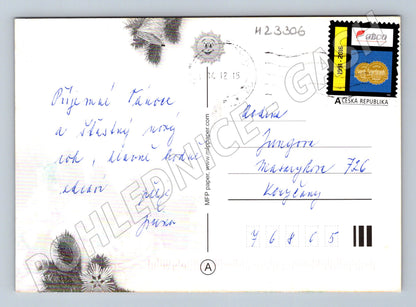 H23306
abca
1994 - 2016
A ČESKA REPUBLIKA
12 15
Příjemné Vánoce
a šťastný nový
rok, hlavně hodně
zdraví přeje
Jiřina
MFP paper, www.mfppaper.com
Rodina
Jungova
Masarykova 726
Koryčany
7 6 8 6 5
A
POHLEDNICE - GASIN